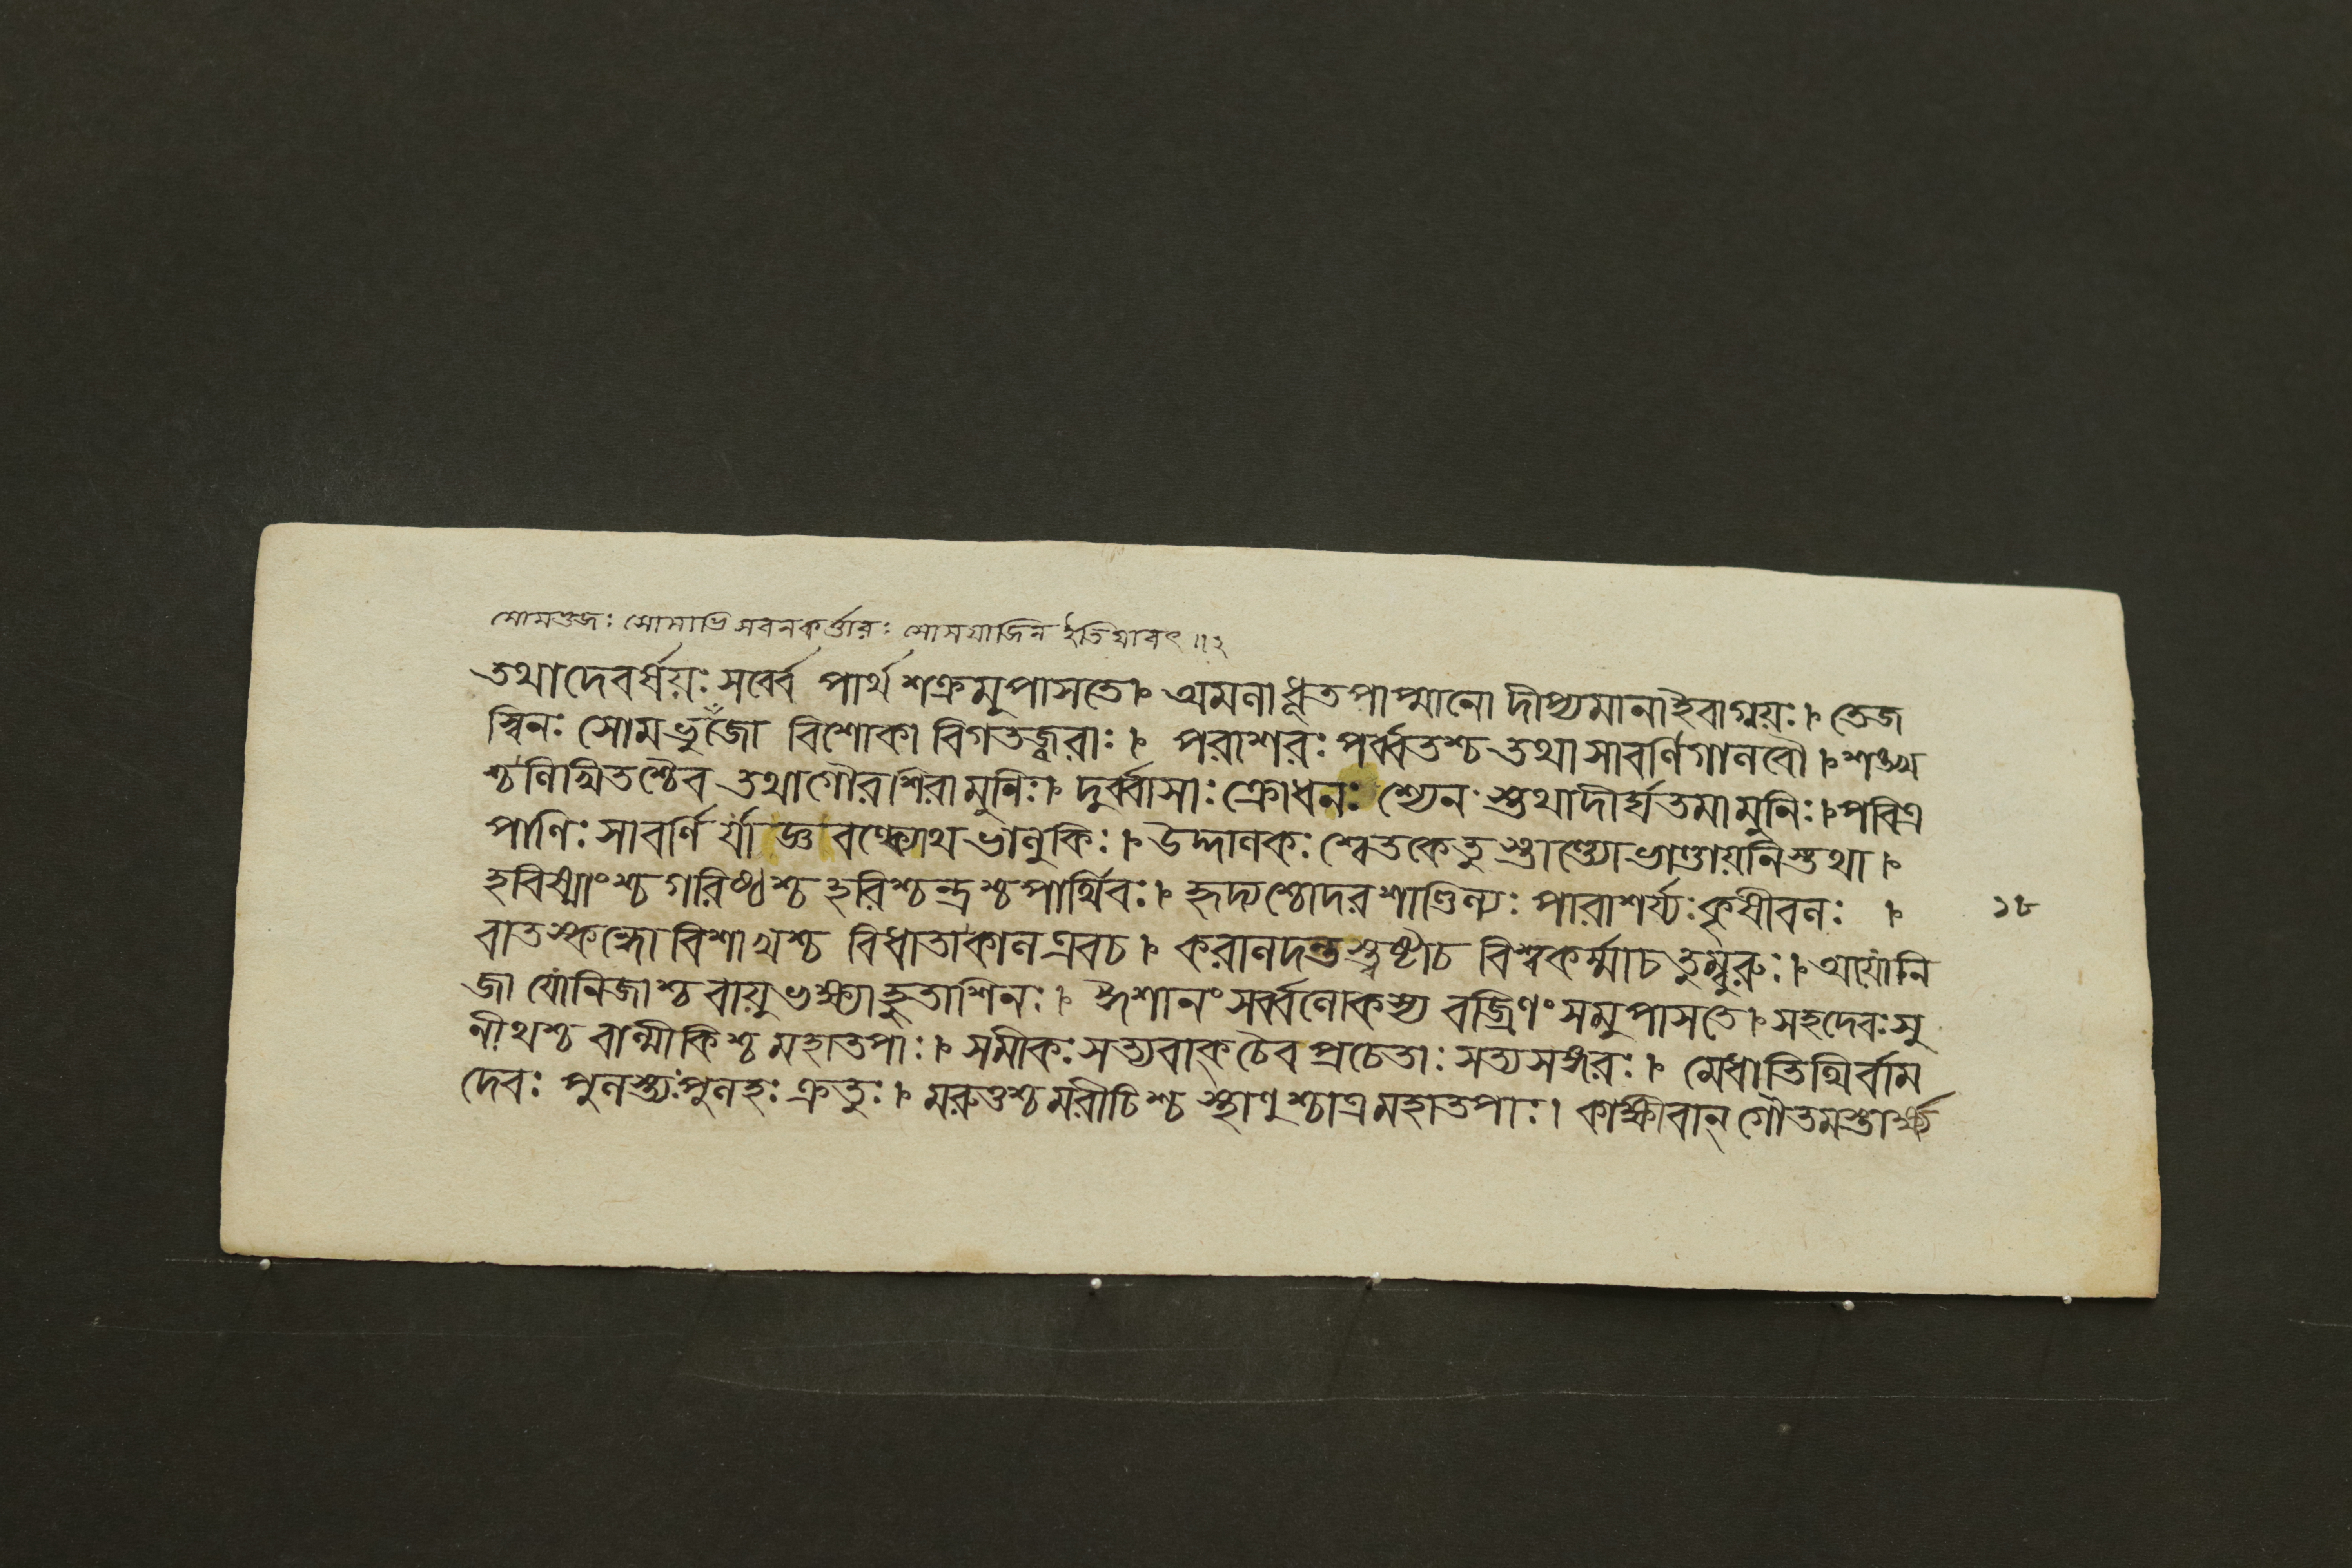 সোমশুজঃ সোমাভিসবনকর্ত্তারঃ সোমযাজিন ইতিযাবৎ ॥২
তথাদেবর্ষয়ঃ সর্ব্বে পার্থ শক্রমুপাসতে। অমলা ধূতপাপ্মানো দীপ্যমানাইবাগ্নয়ঃ। তেজ
স্বিনঃ সোমভুজো বিশোকা বিগতজ্বরাঃ। পরাশরঃ পর্ব্বতশ্চ তথা সাবর্ণিগালবৌ। শঙ্খ
শ্চ লিখিতশ্চৈব তথাগৌরশিরামুনিঃ। দুর্ব্বাসাঃ ক্রোধনঃ শ্যেনস্তথাদীর্ঘতমামুনিঃ। পবিত্র
পাণিঃ সাবর্ণি র্যাজ্ঞবল্ক্যোথ ভালুকিঃ। উদ্দালকঃ শ্বেতকেতু স্তাণ্ড্যোভাণ্ডায়নিস্তথা।
হবিষ্মাংশ্চ গরিষ্ঠশ্চ হরিশ্চন্দ্রশ্চ পার্থিবঃ। হৃদ্যশ্চোদরশাণ্ডিল্যঃ পারাশর্য্যঃ কৃষীবলঃ।
১৮
বাতস্কন্ধো বিশাখশ্চ বিধাতাকাল এবচ। করালদন্তস্ত্বষ্টাচ বিশ্বকর্ম্মাচ তুম্বুরুঃ। অযোনি
জা যোনিজাশ্চ বায়ুভক্ষ্যাহুতাশিনঃ। ঈশানং সর্ব্বলোকস্য বজ্রিণং সমুপাসতে। সহদেবঃ সু
নীথশ্চ বাল্মীকিশ্চ মহাতপাঃ। সমীকঃ সত্যবাক্ চৈব প্রচেতাঃ সত্যসঙ্গরঃ। মেধাতিথির্বাম
দেবঃ পুলস্ত্যঃ পুলহঃ ক্রতুঃ। মরুত্তশ্চ মরীচিশ্চ স্থাণুশ্চাত্র মহাতপাঃ। কাক্ষীবান্ গৌতমস্তার্ক্ষ